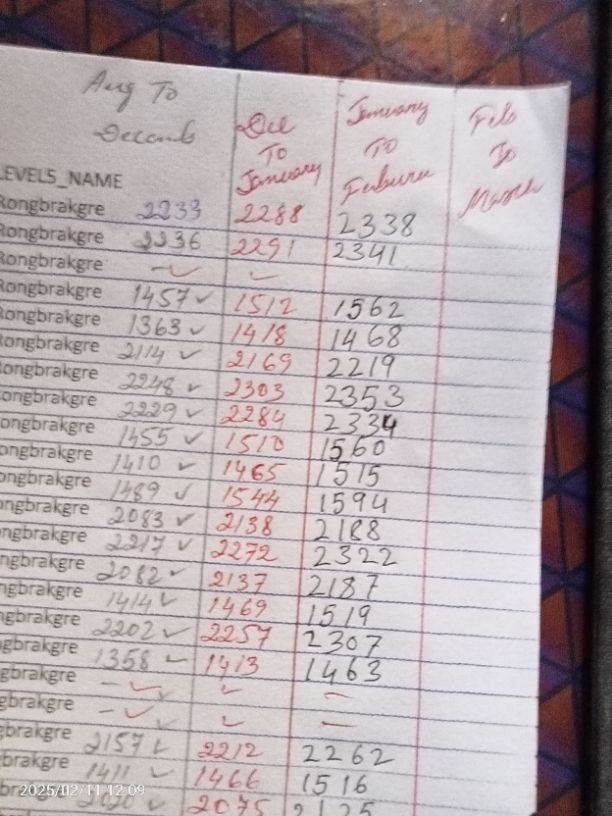 Aug To Decemb
Dec To January
January TO Feburu
Feb To March
LEVEL5_NAME
Rongbrakgre 2233 2288 2338
Rongbrakgre 2236 2291 2341
Rongbrakgre - ✓ ✓
Rongbrakgre 1457 ✓ 1512 1562
Rongbrakgre 1363 ✓ 1418 1468
Rongbrakgre 2114 ✓ 2169 2219
Rongbrakgre 2248 ✓ 2303 2353
ongbrakgre 2229 ✓ 2284 2334
ongbrakgre 1455 ✓ 1510 1560
ongbrakgre 1410 ✓ 1465 1515
ongbrakgre 1489 ✓ 1544 1594
ongbrakgre 2083 ✓ 2138 2188
ongbrakgre 2217 ✓ 2272 2322
ngbrakgre 2082 ✓ 2137 2187
ngbrakgre 1414 ✓ 1469 1519
ngbrakgre 2202 ✓ 2257 2307
gbrakgre 1358 ✓ 1413 1463
gbrakgre - ✓ ✓ -
gbrakgre - ✓ ✓ -
gbrakgre 2157 ✓ 2212 2262
gbrakgre 1411 ✓ 1466 1516
brakgre 2020 ✓ 2075 2125
2025/02/11 12:09